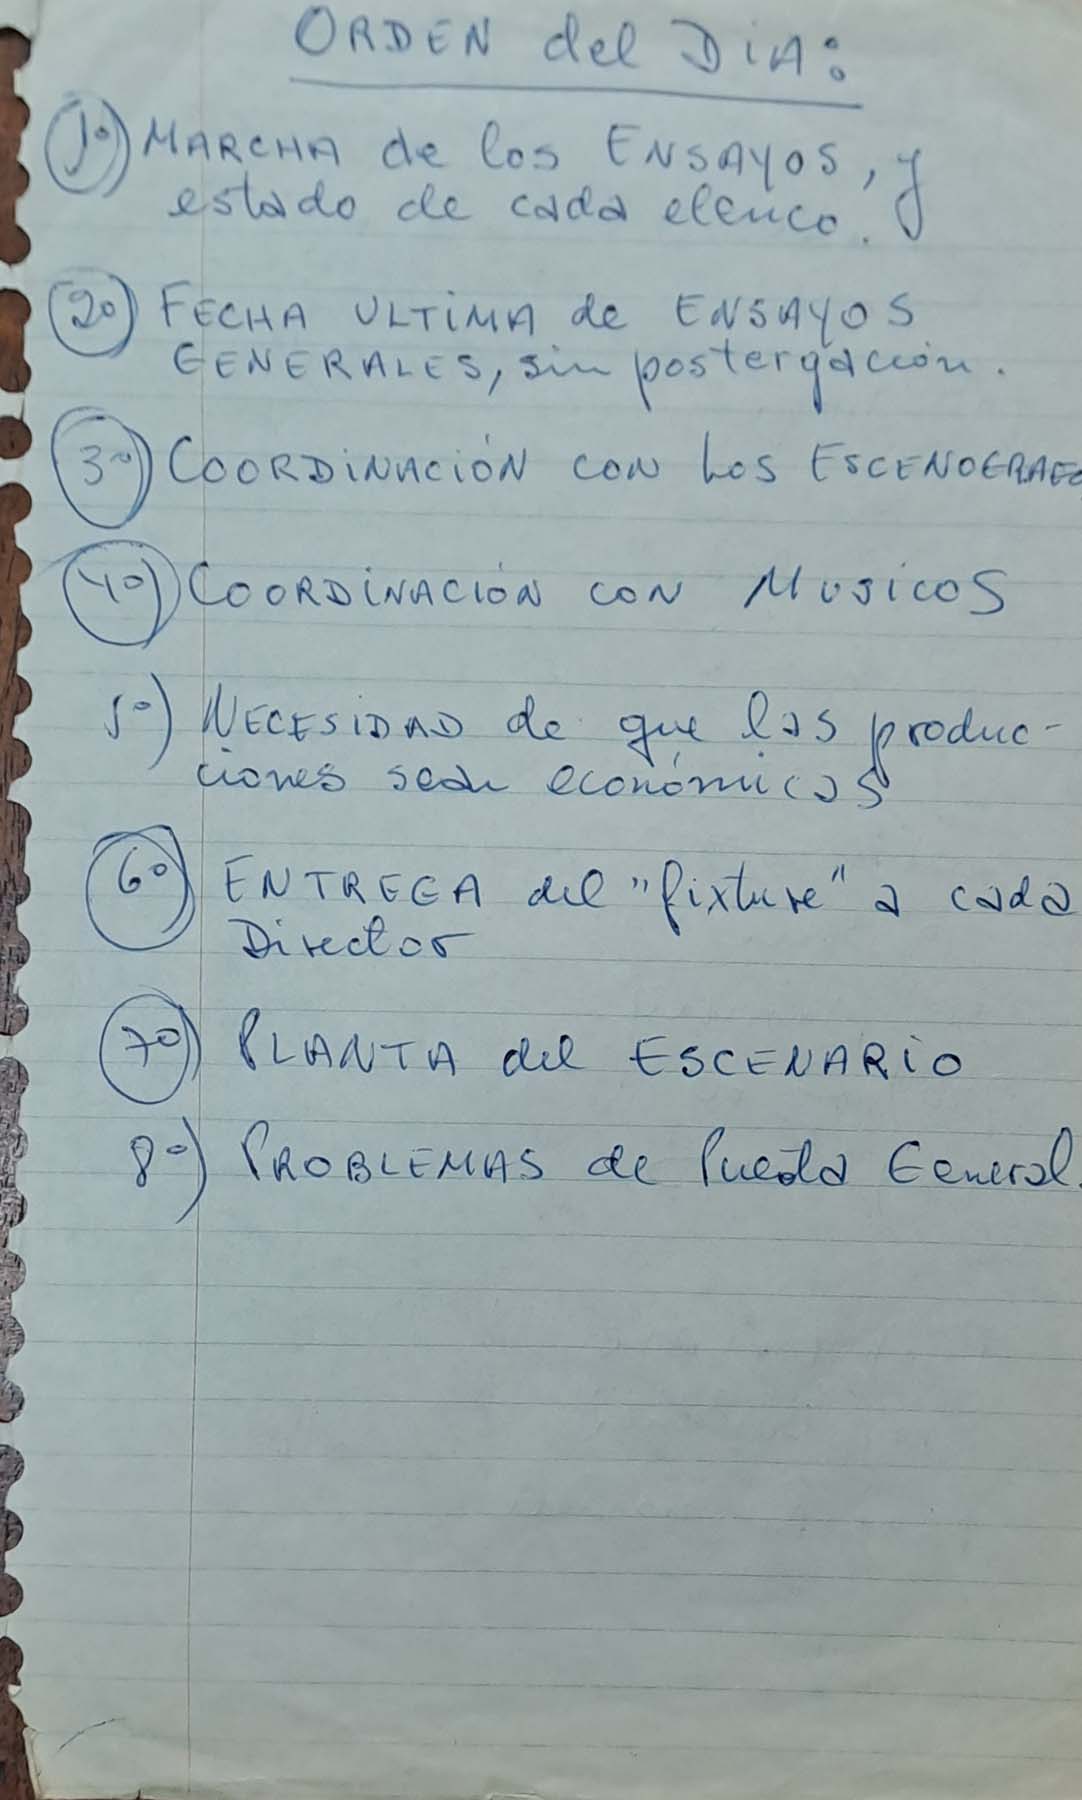 ORDEN del DiA:
1º) MARCHA de los ENSAYOS, y
estado de cada elenco.
2º) FECHA ULTiMA de ENSAYOS
GENERALES, sin postergación.
3º) COORDiNACiÓN CON LOS ESCENOGRAFO
4º) COORDiNACiÓN CON MUSiCOS
5º) NECESiDAD de que las produc-
ciones sean económicas
6º) ENTREGA del "fixture" a cada
Director
7º) PLANTA del ESCENARiO
8º) PROBLEMAS de Puesta General.